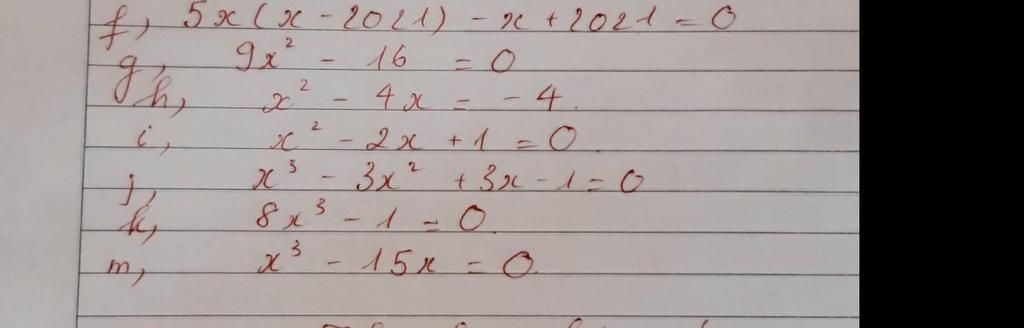 f, 5x(x - 2021) - x + 2021 = 0
g, 9x² - 16 = 0
h, x² - 4x = -4.
i, x² - 2x + 1 = 0.
j, x³ - 3x² + 3x - 1 = 0
k, 8x³ - 1 = 0.
m, x³ - 15x = 0.